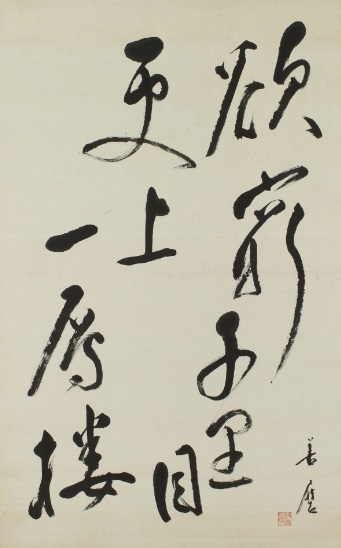 欲窮千里目
更上一層樓
善麿